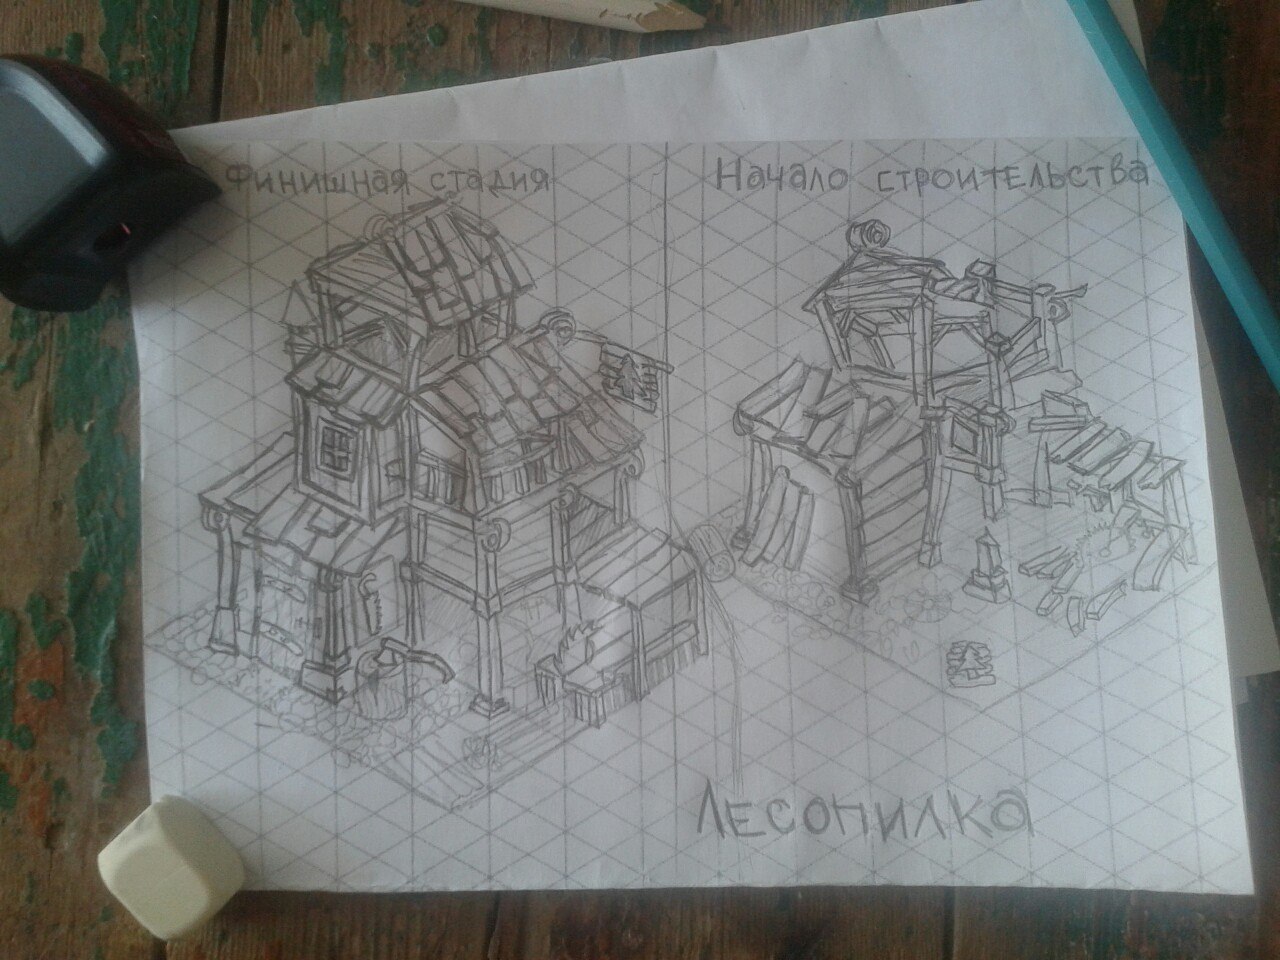 Финишная стадия
Начало строительства
Лесопилка